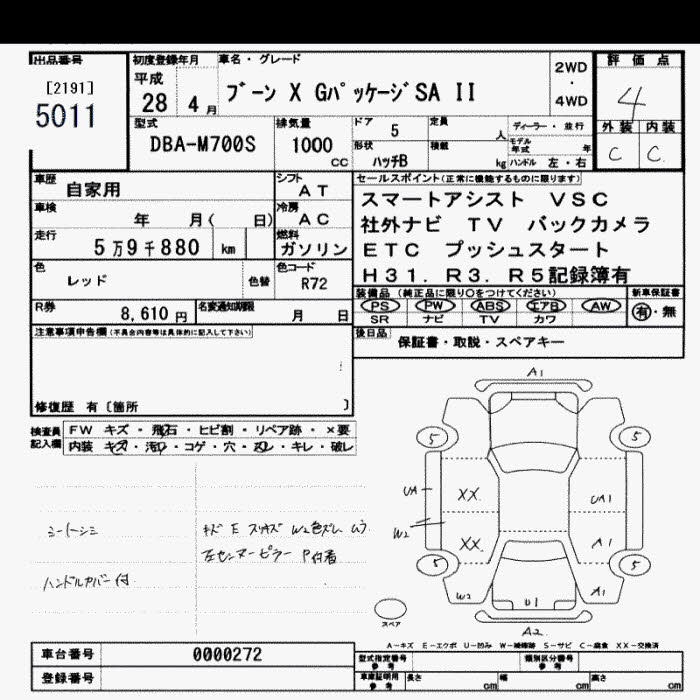 出品番号
[2191]
5011
初度登録年月
平成
28 4 月
車名・グレード
ブーン X GパッケージSA II
2WD
・
4WD
評価点
4
外装 内装
C C
型式
DBA-M700S
排気量
1000
cc
ドア
5
定員
人
ディーラー・並行
形状
ハッチB
積載
kg
モデル年式
年
ハンドル 左・右
車歴
自家用
シフト
AT
車検
年 月( 日)
冷房
AC
走行
5万9千880 km
燃料
ガソリン
色
レッド
色替
色コード
R72
R券
8,610 円
名変通知期限
月 日
セールスポイント(正常に機能するものに限ります)
スマートアシスト VSC
社外ナビ TV バックカメラ
ETC プッシュスタート
H31．R3．R5記録簿有
装備品 (純正品に限り○をつけてください)
新車保証書
PS PW ABS エアB AW
SR ナビ TV カワ
有・無
後日品
保証書・取説・スペアキー
注意事項申告欄(不具合内容等は具体的に記入して下さい)
修復歴 有〔箇所 〕
検査員記入欄
FW キズ・飛石・ヒビ割・リペア跡・×要
内装 キズ・汚レ・コゲ・穴・ヌレ・キレ・破レ
ハンドルカバー付
左センターピラー P付着
A1
5 5
UA XX UA1
W2 XX A1
5 5
W2 U1 A1
スペア
A2
A-キズ E-エクボ U-凹み W-補修跡 S-サビ C-腐食 XX-交換済
車台番号
0000272
登録番号
型式指定番号
参考
類別区分番号
参考
車庫証明用
参考
長さ cm
幅 cm
高さ cm